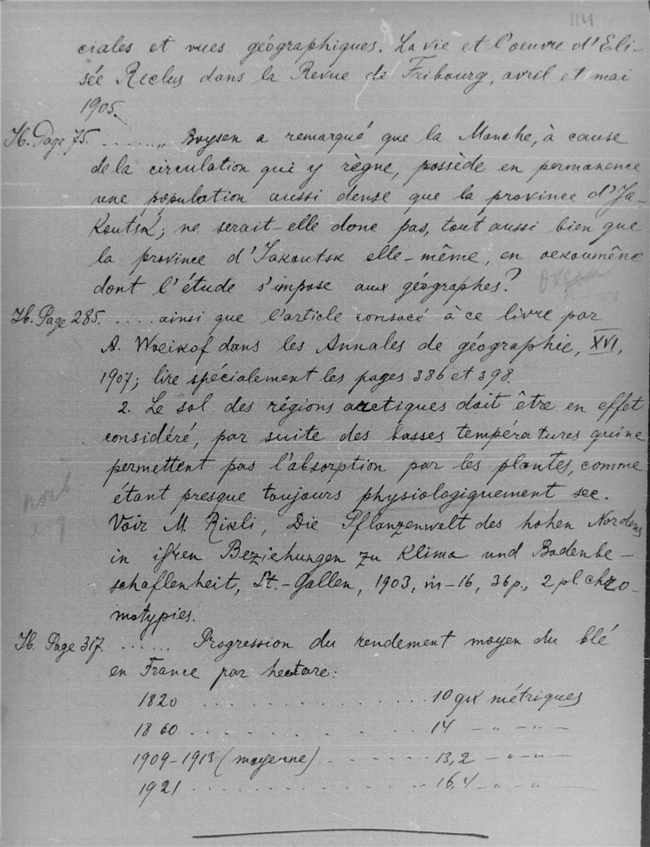 ciales et vues géographiques. La vie et l'œuvre d'Eli-
sée Reclus dans la Revue de Fribourg, avril et mai
1905.
Ib. Page 75. ....... „ Boysen a remarqué que la Manche, à cause
de la circulation qui y règne, possède en permanence
une population aussi dense que la province d'Ja-
Koutsk; ne serait-elle donc pas, tout aussi bien que
la province d'Jakoutsk elle-même, en oekoumène
dont l'étude s'impose aux géographes?
Ib. Page 285. .... ainsi que l'article consacé à ce livre par
A. Woeikof dans les Annales de géographie, XVI,
1907; lire spécialement les pages 386 et 398.
2. Le sol des régions arctiques doit être en effet
considéré, par suite des basses températures qui ne
permettent pas l'absorption par les plantes, comme
étant presque toujours physiologiquement sec.
Voir M. Rikli, Die Pflanzenwelt des hohen Nordens
in ihren Beziehungen zu Klima und Bodenbe-
schaffenheit, St.-Gallen, 1903, in-16, 36 p., 2 pl chro-
motypies.
Ib. Page 317. ...... Progression du rendement moyen du blé
en France par hectare:
1820 .............. 10 qx métriques
1860 .............. 14 – „ – „ –
1909-1913 (moyenne) ....... 13,2 – „ – „ –
1921 .............. 16,4 – „ – „ –